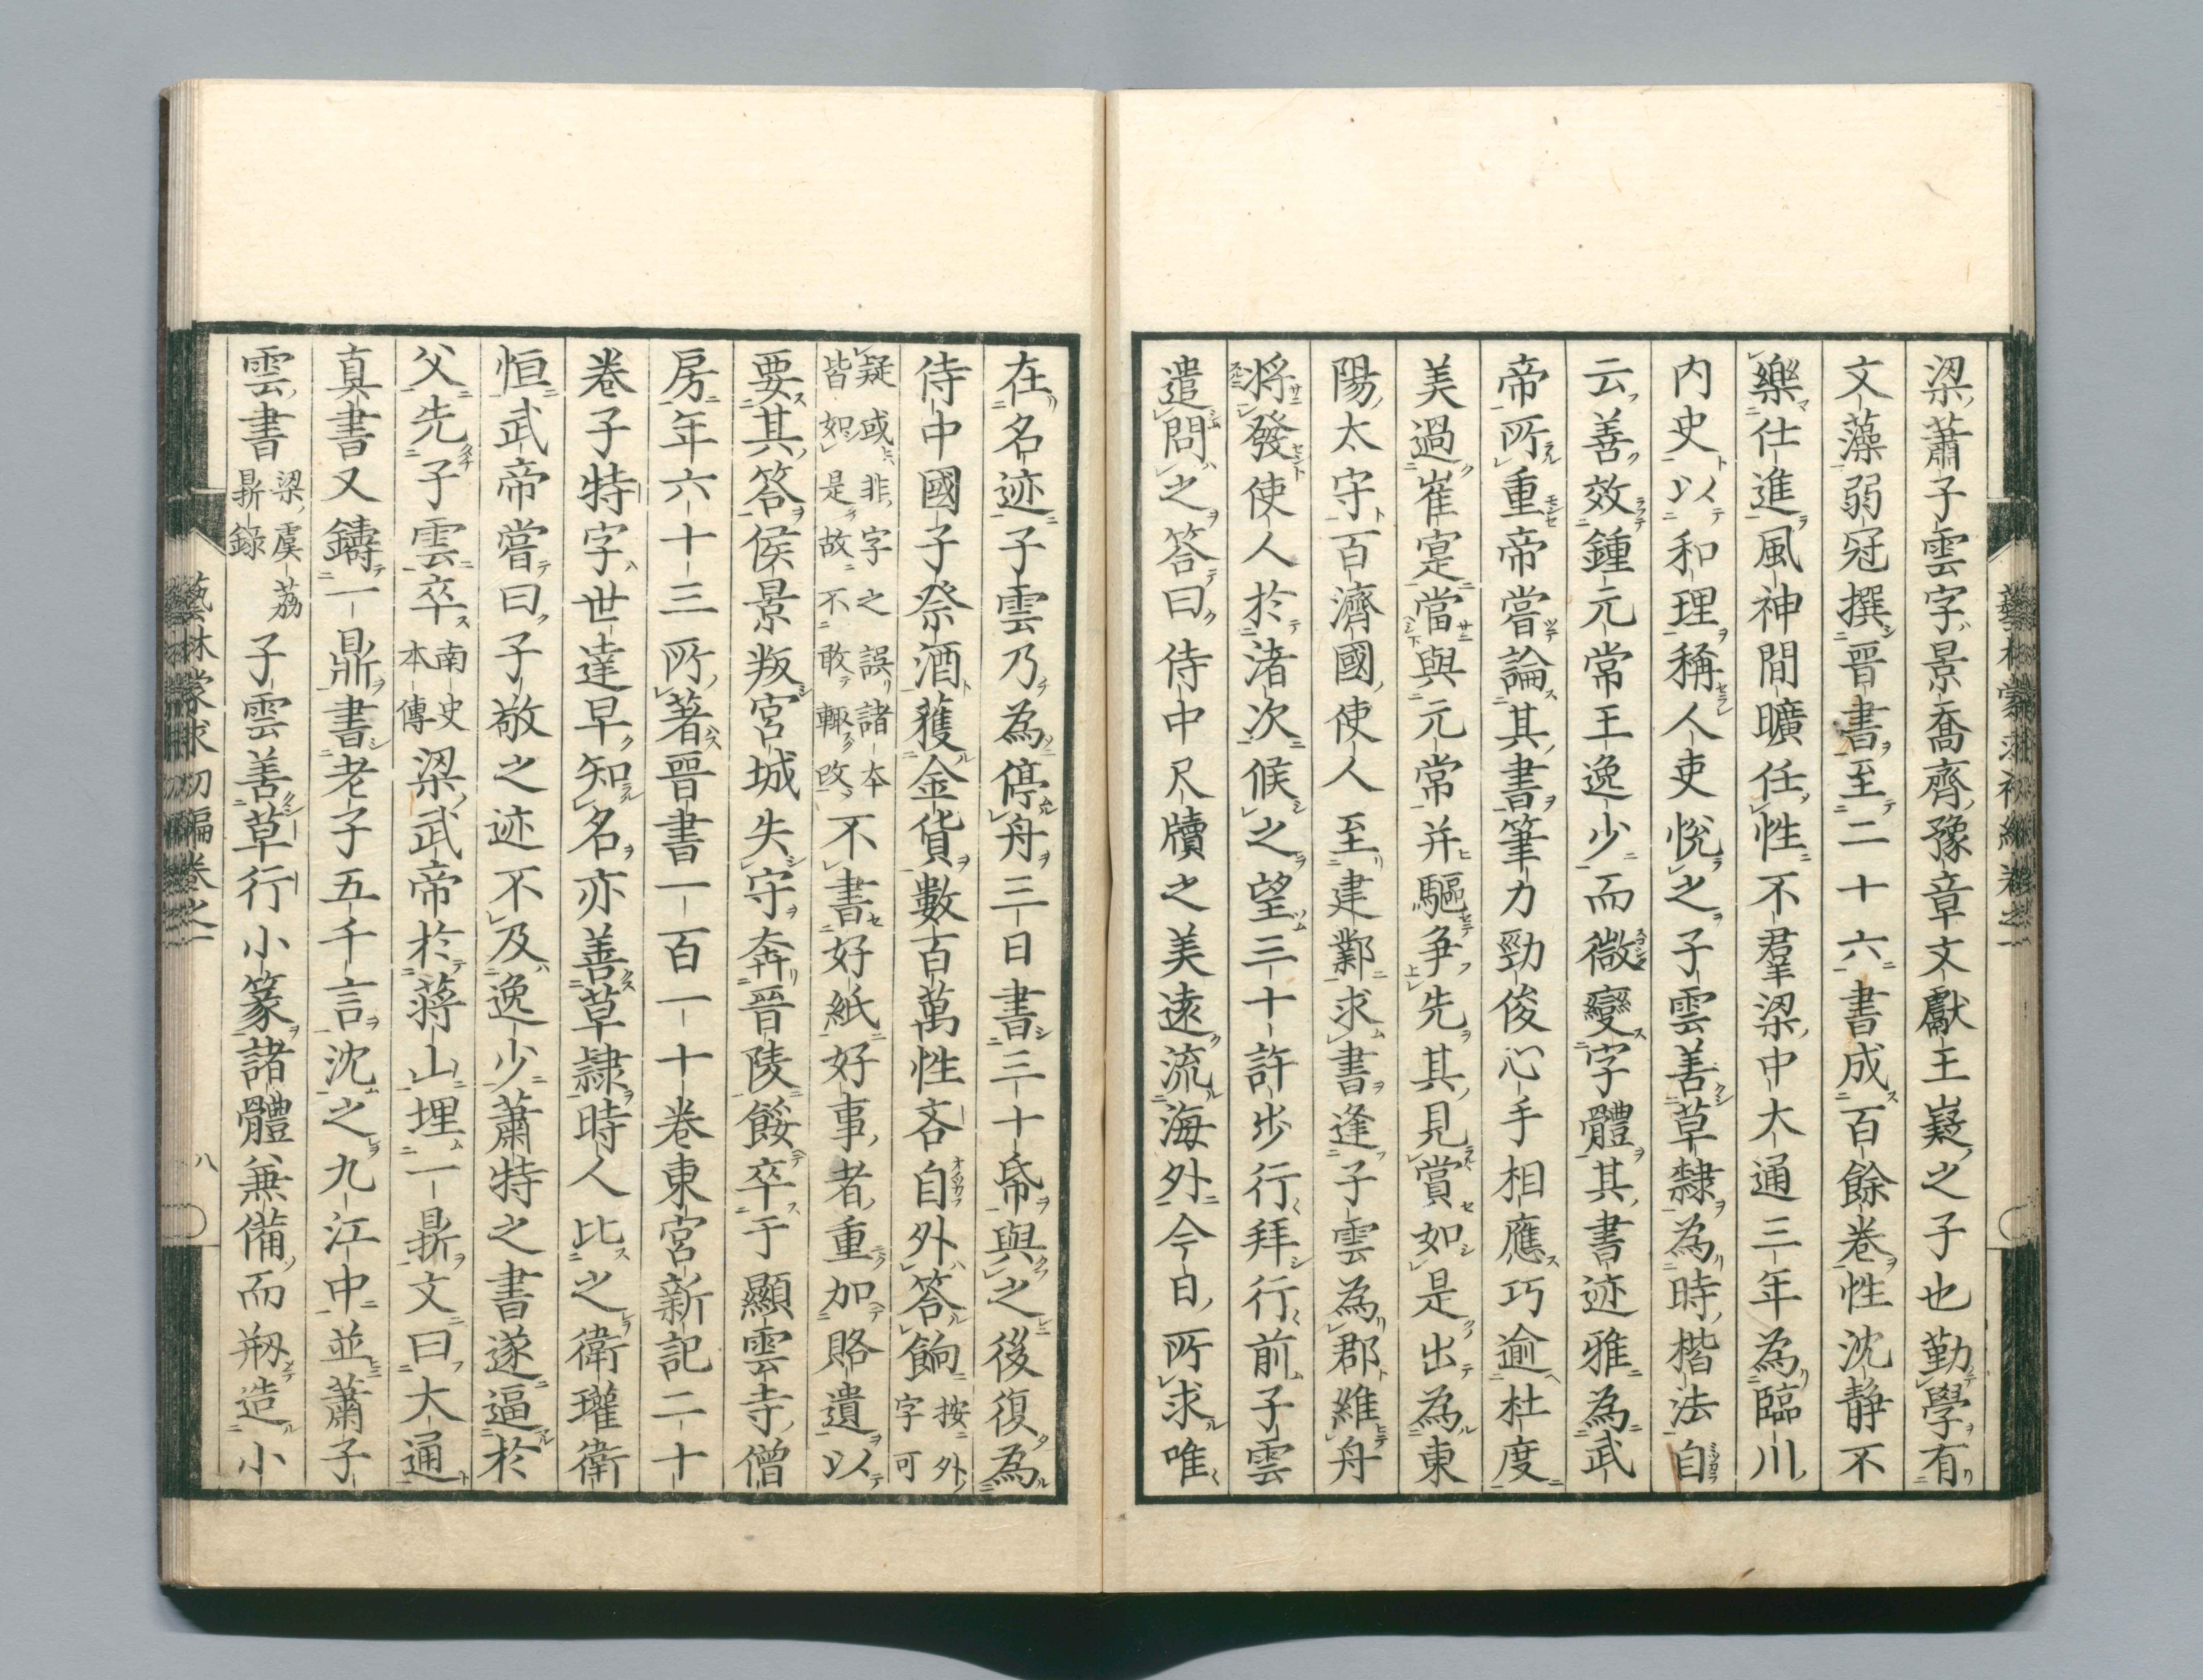 梁蕭子雲字景喬齊豫章文獻王嶷之子也勤學有
文藻弱冠撰晉書至二十六書成百餘卷性沈靜不
樂仕進風神閒曠任性不羣梁中大通三年為臨川
内史以和理稱人吏悅之子雲善草隸為時楷法自
云善效鍾元常王逸少而微變字體其書迹雅為武
帝所重帝嘗論其書筆力勁俊心手相應巧逾杜度
美過崔寔當與元常并驅爭先其見賞如是出為東
陽太守百濟國使人至建鄴求書逢子雲為郡維舟
將發使人於渚次候之望三十許步行拜行前子雲
遣問之答曰侍中尺牘之美遠流海外今日所求唯
在名迹子雲乃為停舟三日書三十帋與之後復為
侍中國子祭酒獲金貨數百萬性吝自外答餉按外字可
疑或非字之誤諸本皆如是故不敢輙改不書好紙好事者重加賂遺以
要其答侯景叛宮城失守奔晉陵餒卒于顯雲寺僧
房年六十三所著晉書一百一十卷東宮新記二十
卷子特字世達早知名亦善草隸時人比之衛瓘衛
恒武帝嘗曰子敬之迹不及逸少蕭特之書遂逼於
父先子雲卒南史本傳梁武帝於蔣山埋一鼎文曰大通
真書又鑄一鼎書老子五千言沈之九江中並蕭子
雲書梁虞荔鼎錄子雲善草行小篆諸體兼備而剏造小
藝林蒙求初編卷之一
八